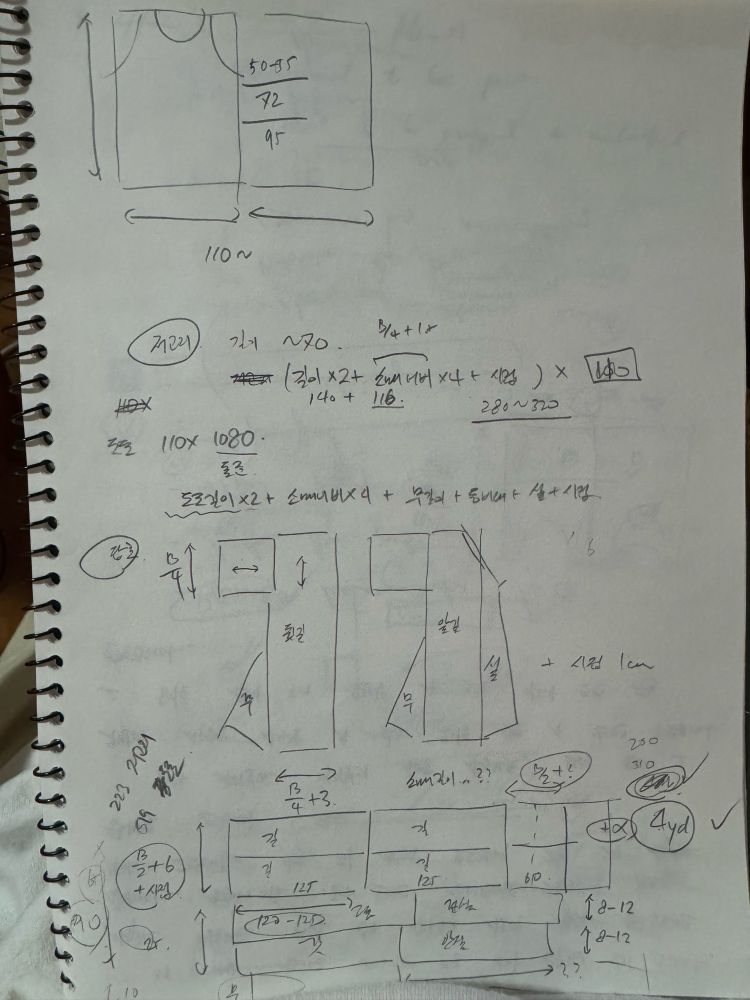 50-95
72
95
110~
저고리 길이 ~70. B/4+1
(길이×2+소매너비×4+시접) × 140
140 + 116 280~320
도포 110× 1080.
도포길이×2+소매너비×4 + 무길이 + + 시접
B/4 뒷길 앞길
무 무 섶 + 시접 1cm
250
310
B/4+3. 소매길이..?? B/2+
길 길 +α 4yd
B/2+6
+시접
길 길
125 125 60
120-125 겉섶 8-12
90 깃 안섶 8-12
??
무